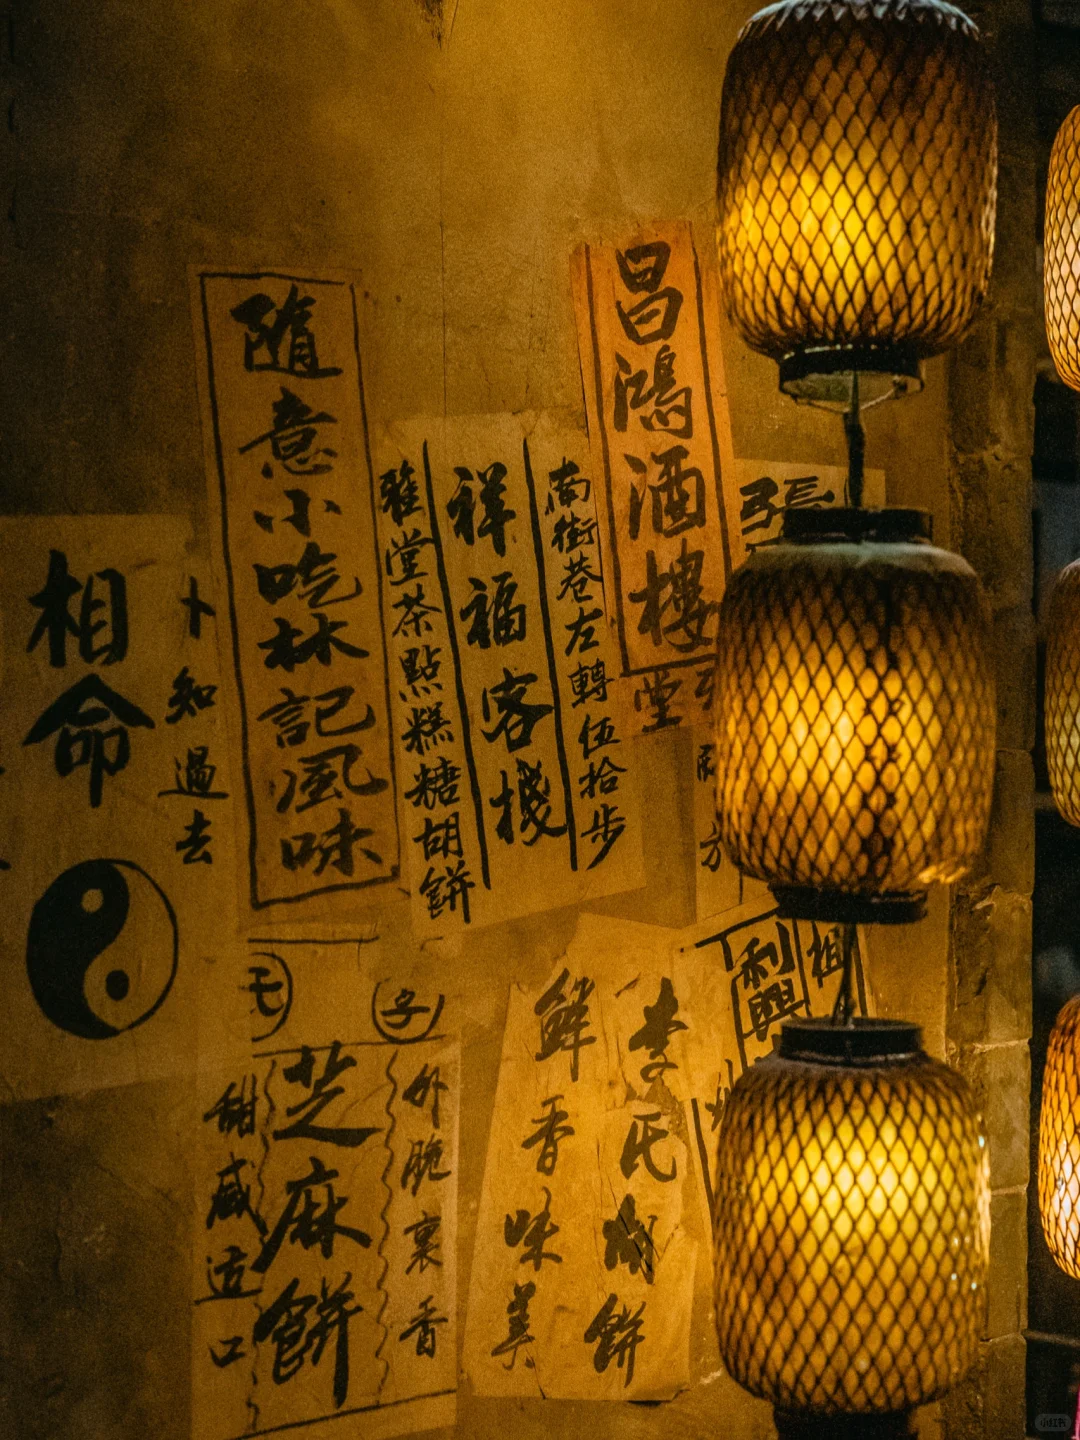 昌鴻酒樓
南街巷左轉伍拾步
祥福客棧
雅堂茶點糕糖胡餅
隨意小吃林記風味
卜知過去
相命
張
堂
方
相
利興
李氏
餅
鮮香味美
子
外脆裏香
芝麻餅
甜咸适口
小红书